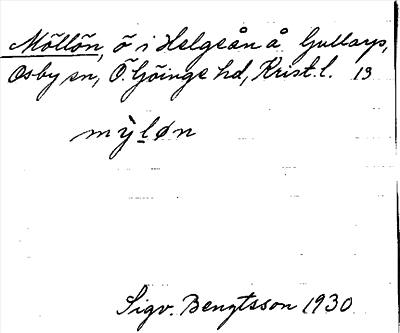 Möllön, ö i Helgeån å Gullarp,
Osby sn, Ö. Göinge hd, Krist. l. 13
mỳl̲øn
Sigv. Bengtsson 1930